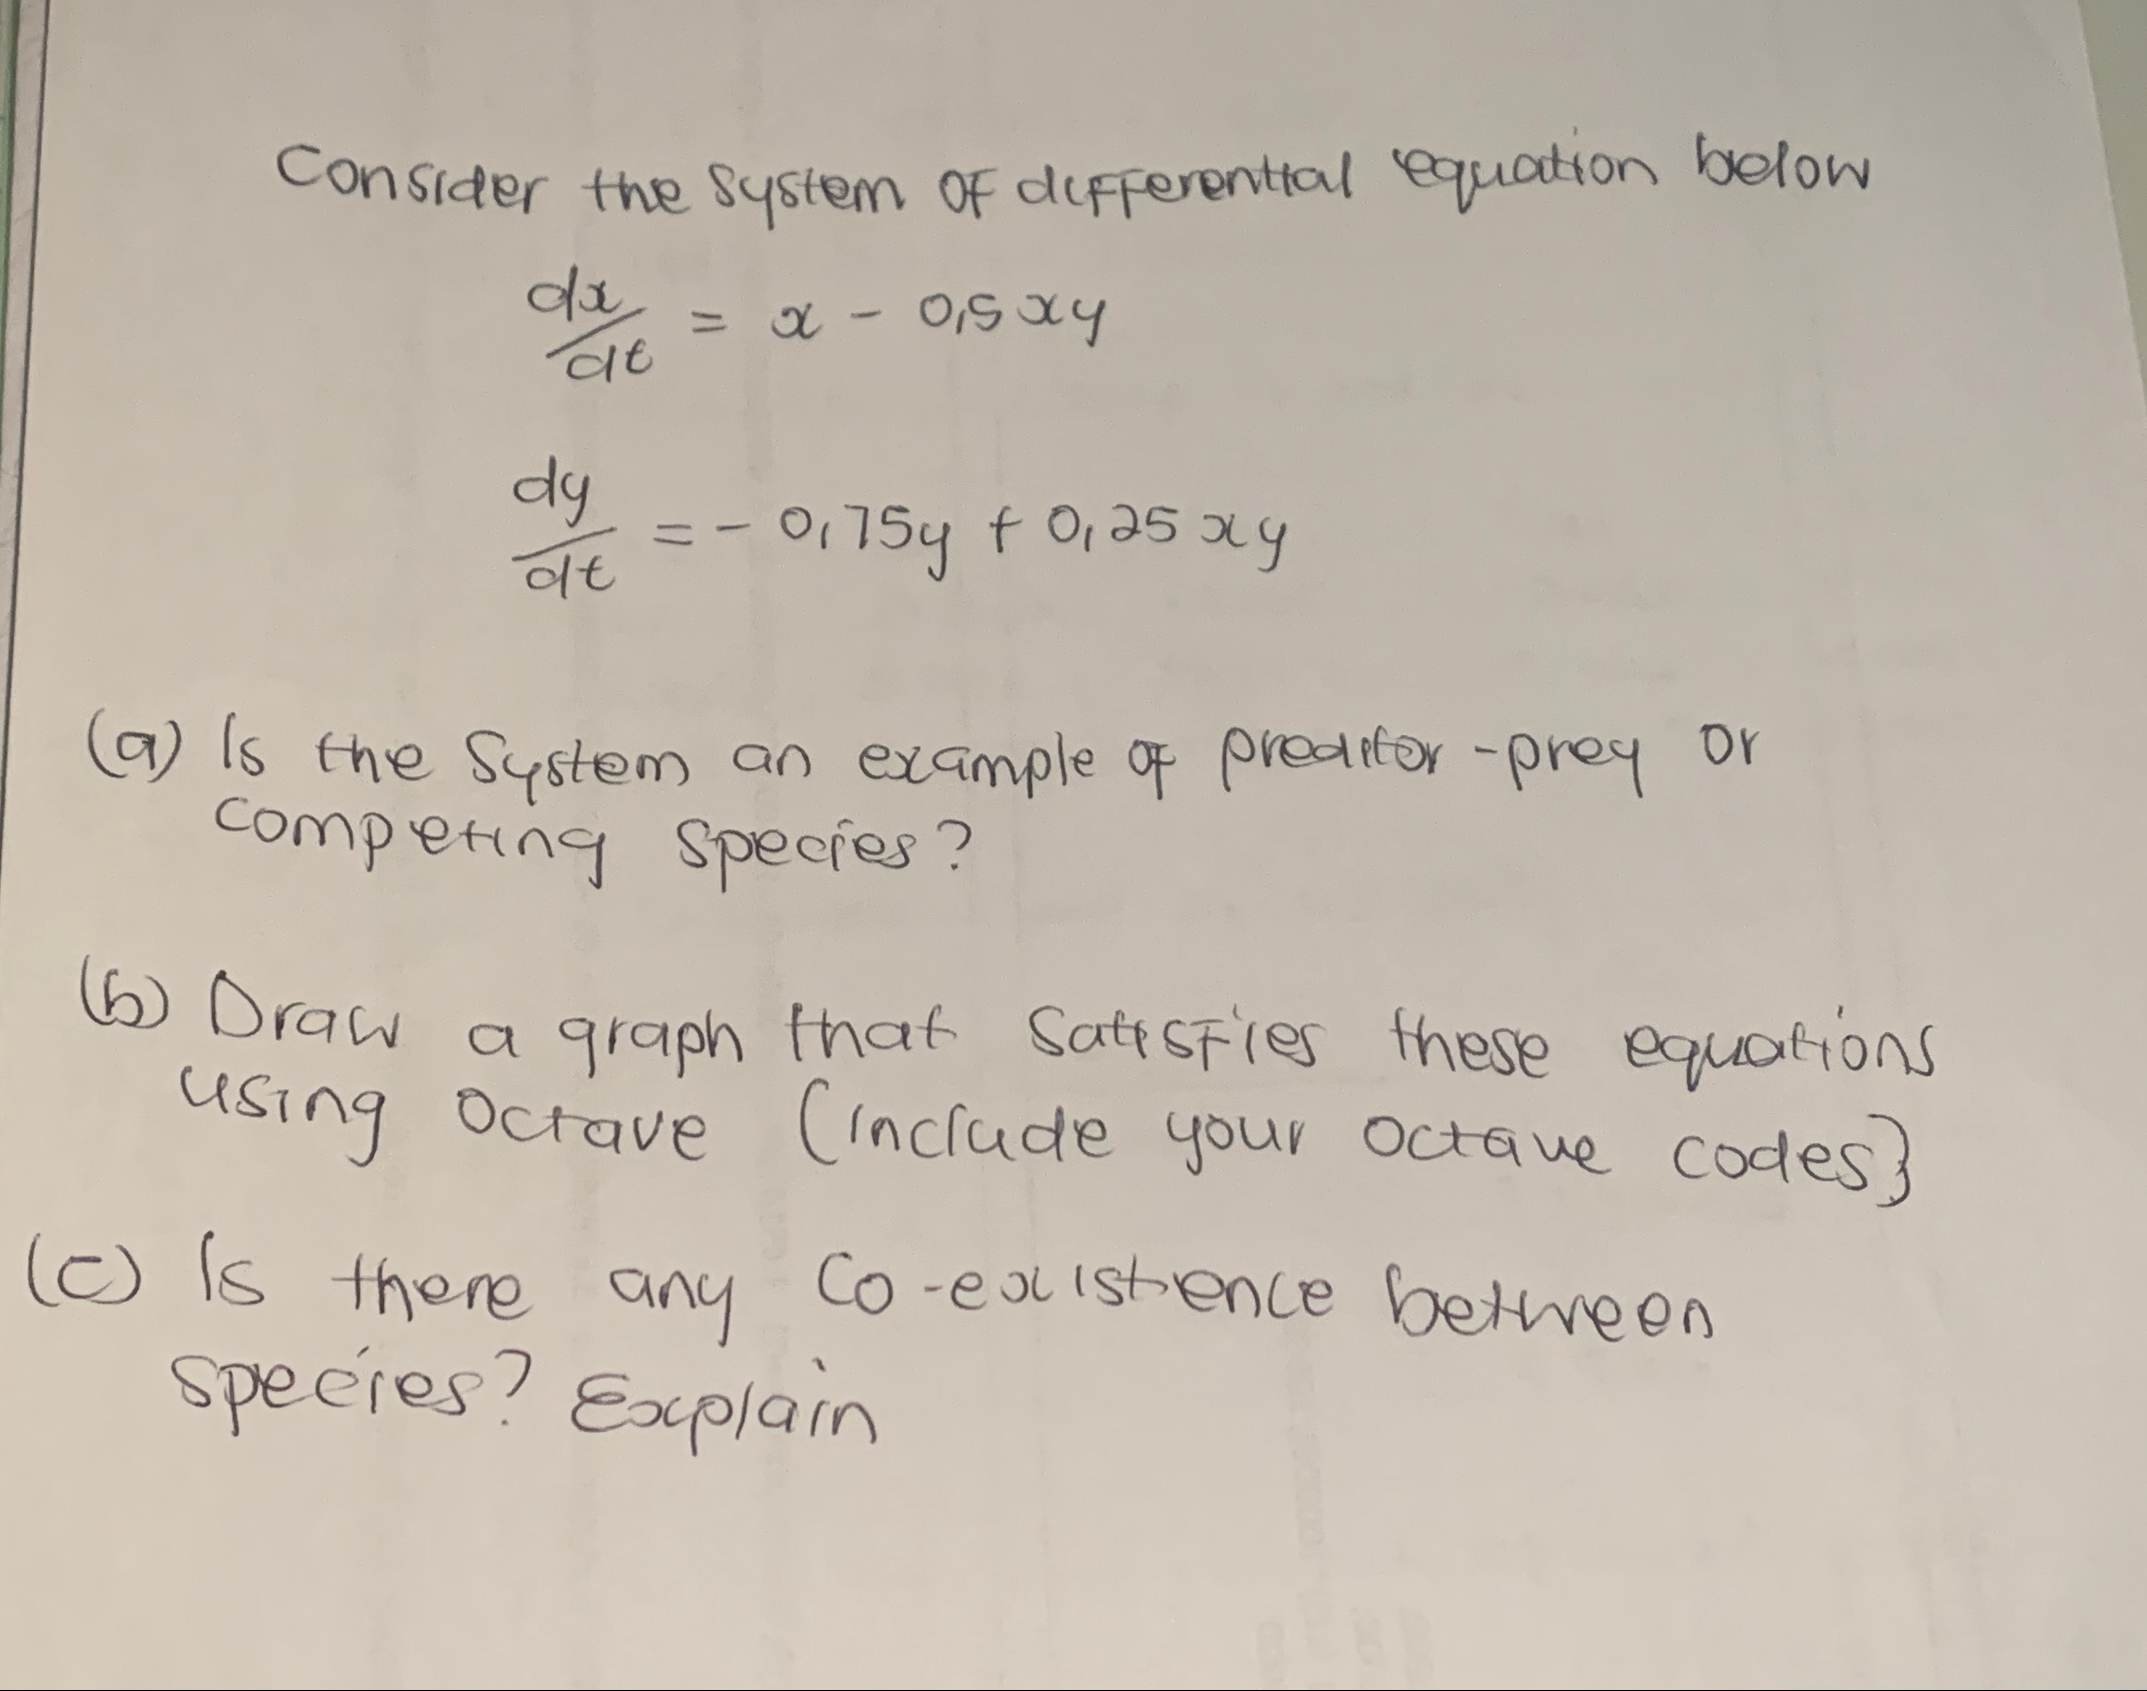 Consider the system of differential equation below
dx/dt = x - 0,5xy
dy/dt = - 0,75y + 0,25xy
(a) Is the system an example of preditor-prey or
competing species?
(b) Draw a graph that satisfies these equations
using octave (include your octave codes}
(c) Is there any co-existence between
species? Explain